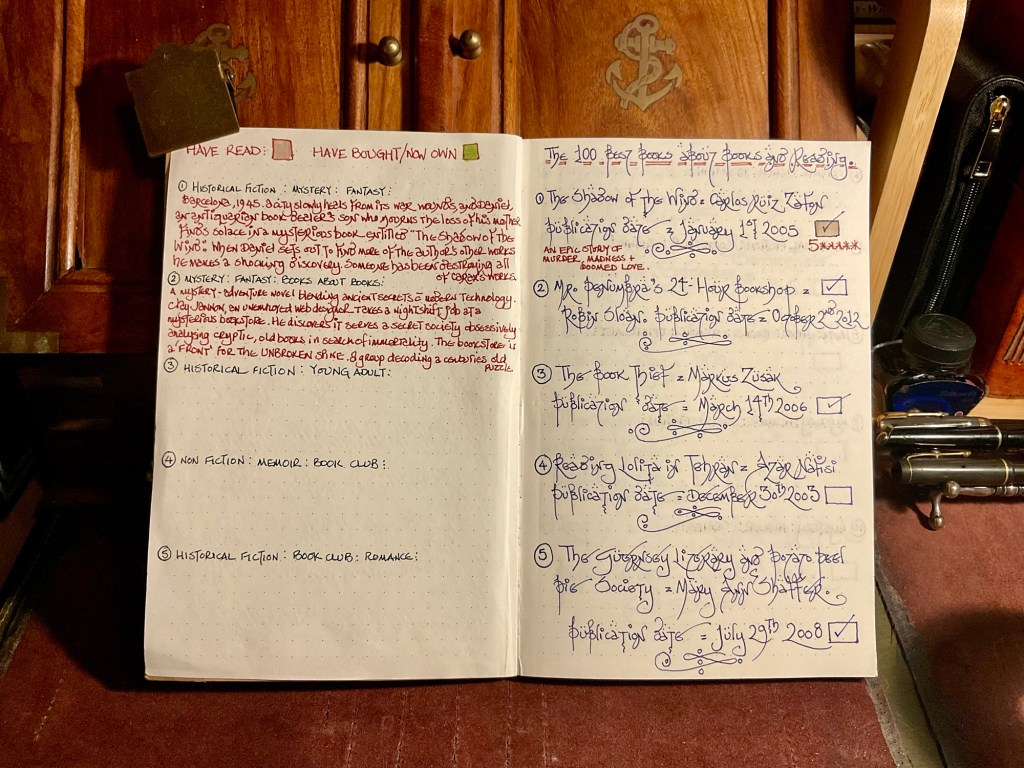 HAVE READ: HAVE BOUGHT/NOW OWN
① HISTORICAL FICTION : MYSTERY : FANTASY:
Barcelona, 1945. A city slowly heals from its war wounds, and Daniel,
an antiquarian book dealer's son who mourns the loss of his mother
finds solace in a mysterious book entitled "The Shadow of the
Wind". When Daniel sets out to find more of the author's other works
he makes a shocking discovery. Someone has been destroying all
of Carax's works.
② MYSTERY : FANTASY : BOOKS ABOUT BOOKS:
A mystery-adventure novel blending ancient secrets = modern technology.
Clay Jannon, an unemployed web designer takes a nightshift job at a
mysterious bookstore. He discovers it serves a secret society obsessively
analysing cryptic, old books in search of immortality. The bookstore is
a 'FRONT' for THE UNBROKEN SPINE. A group decoding a centuries old
puzzle
③ HISTORICAL FICTION : YOUNG ADULT:
④ NON FICTION : MEMOIR : BOOK CLUB :
⑤ HISTORICAL FICTION : BOOK CLUB : ROMANCE:
The 100 Best Books about Books and Reading.
① The Shadow of the Wind = Carlos Ruiz Zafon
publication date = January 1st 2005
5*****
AN EPIC STORY OF
MURDER, MADNESS +
DOOMED LOVE.
② Mr. Penumbra's 24-Hour Bookshop =
Robin Sloan. publication date = October 2nd 2012
③ The Book Thief = Markus Zusak
publication date = March 14th 2006
④ Reading Lolita in Tehran = Azar Nafisi
publication date = December 30th 2003
⑤ The Guernsey Literary and Potato Peel
Pie Society = Mary Ann Shaffer.
publication date = July 29th 2008